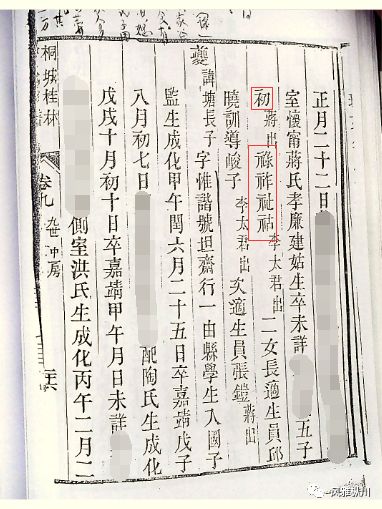 正月二十二日
室懷甯蔣氏孝廉建姑生卒未詳 五子
初 蔣出 祿祚祉祜 李太君出 二女長適生員邱
曉訓導峻子 李太君出 次適生員張鎧 蔣出
夔 諱塘長子 字惟諧號坦齋行一由縣學生入國子
監生成化甲午閏六月二十五日卒嘉靖戊子
八月初七日 配陶氏生成化
戊戌十月初十日卒嘉靖甲午月日未詳
側室洪氏生成化丙午二月二
桐城桂林
卷九 九世中房